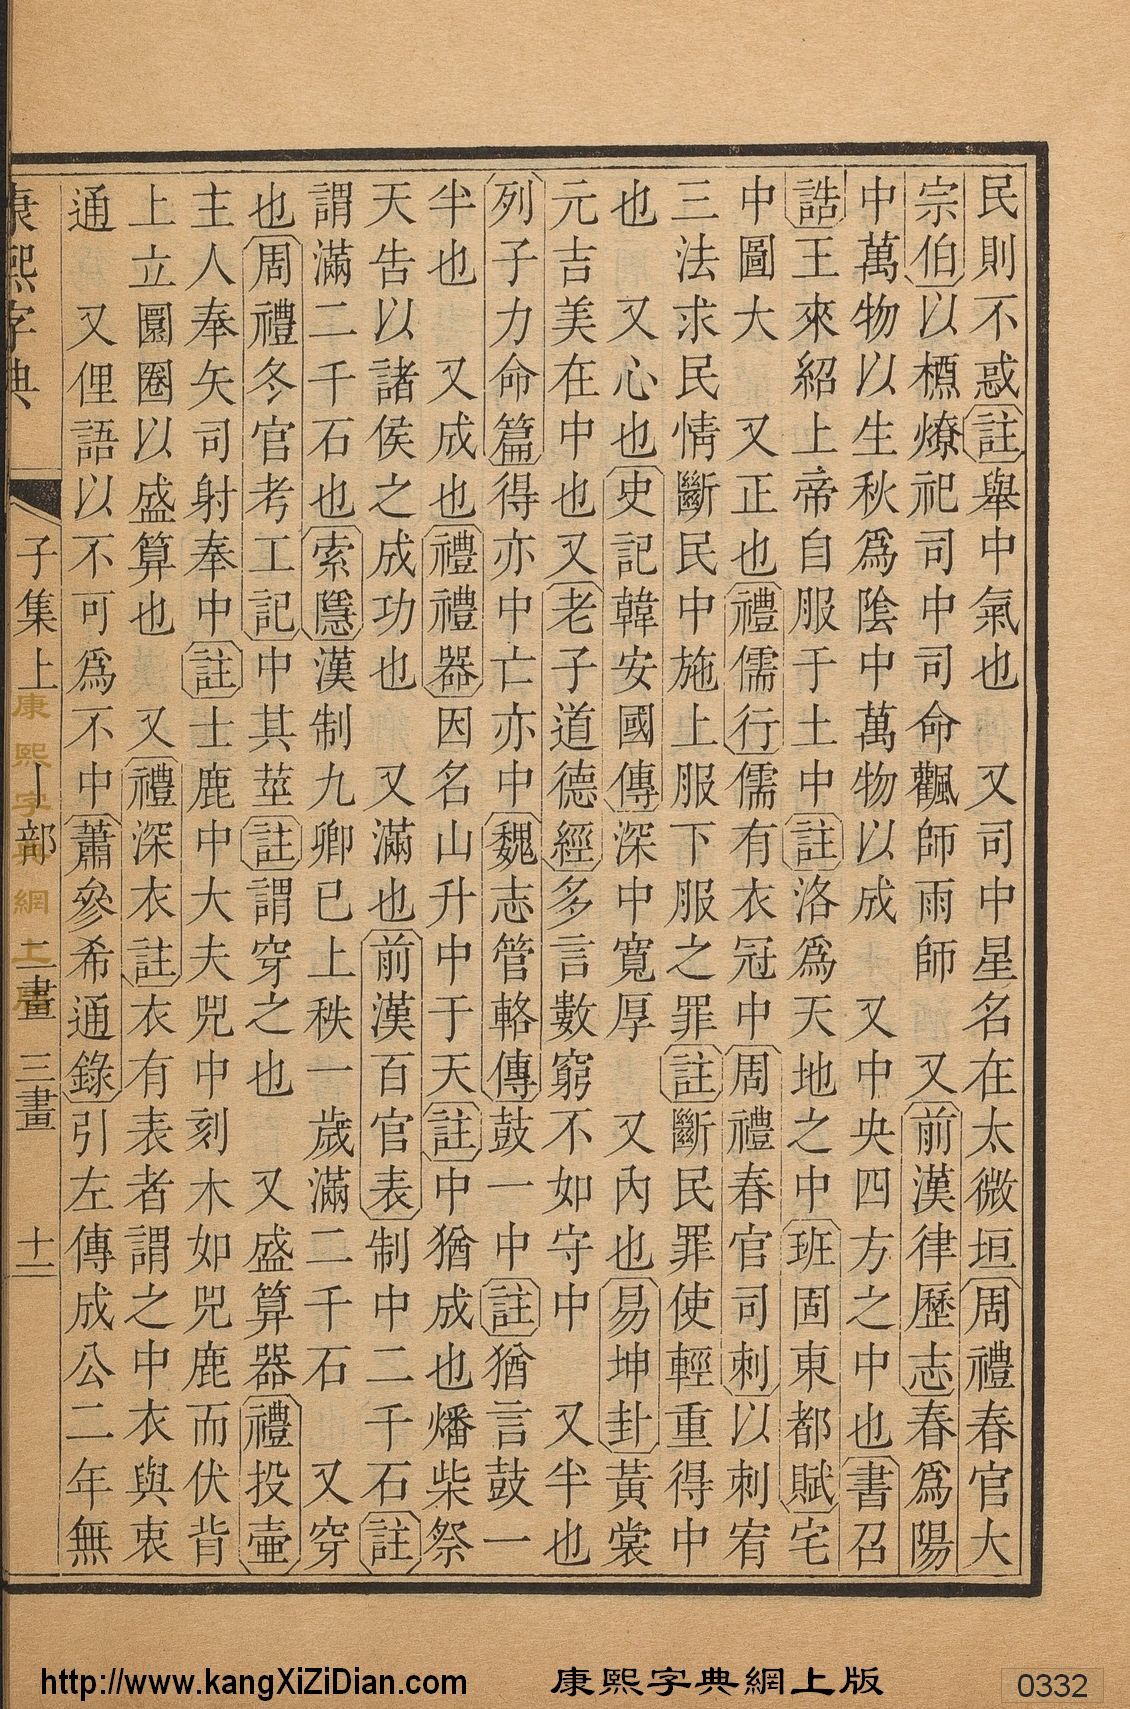 民則不惑註舉中氣也　又司中星名在太微垣周禮春官大
宗伯以槱燎祀司中司命飌師雨師　又前漢律歷志春爲陽
中萬物以生秋爲陰中萬物以成　又中央四方之中也書召
誥王來紹上帝自服于土中註洛爲天地之中班固東都賦宅
中圖大　又正也禮儒行儒有衣冠中周禮春官司刺以刺宥
三法求民情斷民中施上服下服之罪註斷民罪使輕重得中
也　又心也史記韓安國傳深中寬厚　又內也易坤卦黃裳
元吉美在中也又老子道德經多言數窮不如守中　又半也
列子力命篇得亦中亡亦中魏志管輅傳鼓一中註猶言鼓一
半也　又成也禮禮器因名山升中于天註中猶成也燔柴祭
天告以諸侯之成功也　又滿也前漢百官表制中二千石註
謂滿二千石也索隱漢制九卿已上秩一歲滿二千石　又穿
也周禮冬官考工記中其莖註謂穿之也　又盛算器禮投壷
主人奉矢司射奉中註士鹿中大夫兕中刻木如兕鹿而伏背
上立圜圈以盛算也　又禮深衣註衣有表者謂之中衣與衷
通　又俚語以不可爲不中蕭參希通錄引左傳成公二年無
康熙字典　子集上　丨部　二畫　三畫　十二
康熙字典網上版
http://www.kangXiZiDian.com　康熙字典網上版　0332